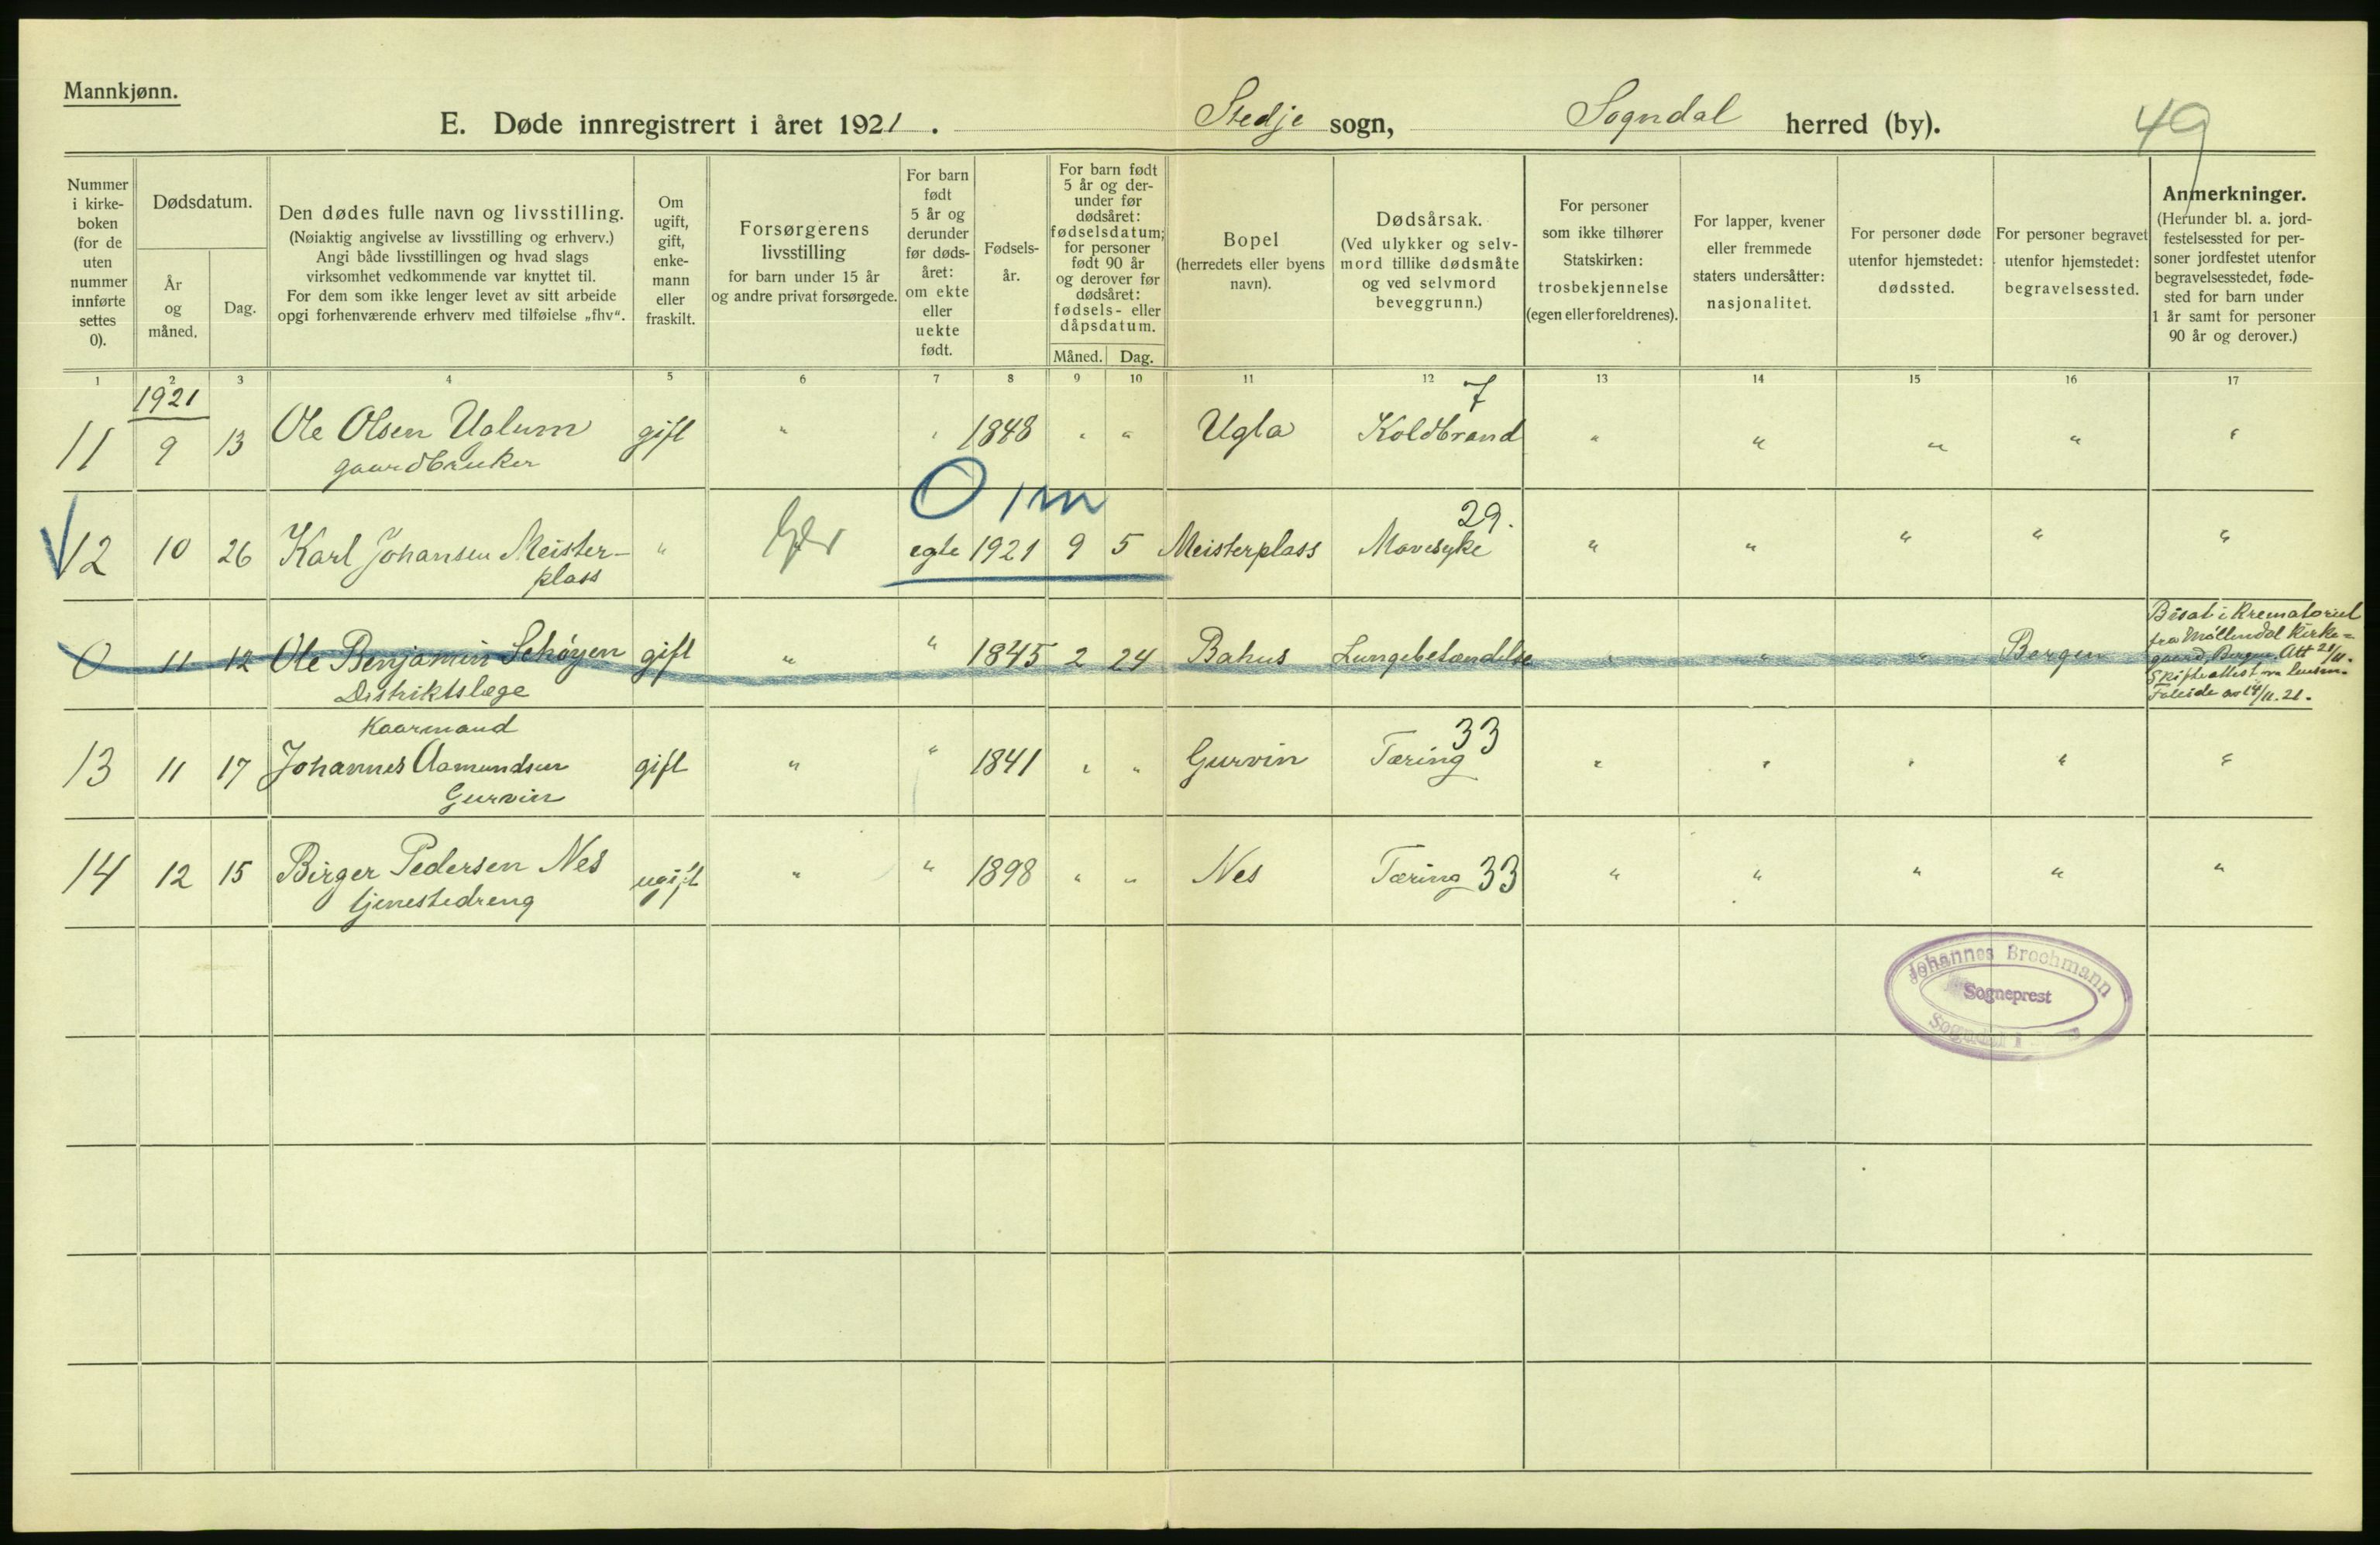 Mannkjønn.
E. Døde innregistrert i året 1921. Stedje sogn, Sogndal herred (by). 49
Nummer i kirkeboken (for de uten nummer innførte settes 0).
Dødsdatum.
År og måned.
Dag.
Den dødes fulle navn og livsstilling.
(Nøiaktig angivelse av livsstilling og erhverv.)
Angi både livsstillingen og hvad slags
virksomhet vedkommende var knyttet til.
For dem som ikke lenger levet av sitt arbeide
opgi forhenværende erhverv med tilføielse „fhv“.
Om ugift, gift, enkemann eller fraskilt.
Forsørgerens livsstilling
for barn under 15 år
og andre privat forsørgede.
For barn født 5 år og derunder før dødsåret: om ekte eller uekte født.
Fødselsår.
For barn født 5 år og derunder før dødsåret: fødselsdatum; for personer født 90 år og derover før dødsåret: fødsels- eller dåpsdatum.
Måned. Dag.
Bopel
(herredets eller byens navn).
Dødsårsak.
(Ved ulykker og selvmord tillike dødsmåte og ved selvmord beveggrunn.)
For personer som ikke tilhører Statskirken: trosbekjennelse (egen eller foreldrenes).
For lapper, kvener eller fremmede staters undersåtter: nasjonalitet.
For personer døde utenfor hjemstedet: dødssted.
For personer begravet utenfor hjemstedet: begravelsessted.
Anmerkninger.
(Herunder bl. a. jordfestelsessted for personer jordfestet utenfor begravelsesstedet, fødested for barn under 1 år samt for personer 90 år og derover.)
1 2 3 4 5 6 7 8 9 10 11 12 13 14 15 16 17
1921 7
11 9 13 Ole Olsen Uglum gift " " 1848 " " Ugla Koldbrand " " " " "
gaardbruker
0 1m
29.
12 10 26 Karl Johansen Meister- " egte 1921 9 5 Meisterplass Mavesyke " " " " "
plass
0 11 12 Ole Benjamin Schøyen gift " " 1845 2 24 Bahus Lungebetændelse " " " Bergen
Distriktslæge
Bisat i Krematoriet
fra Møllendal Kirke=
gaard, Bergen. Att 21/11.
Skifteattest
14/11.21.
Kaarmand 33
13 11 17 Johannes Aamundsen gift " " 1841 " " Gurvin Tæring " " " " "
Gurvin
14 12 15 Birger Pedersen Nes ugift " " 1898 " " Nes Tæring 33 " " " " "
tjenestedreng
Johannes Brochmann
Sogneprest
Sogndal i